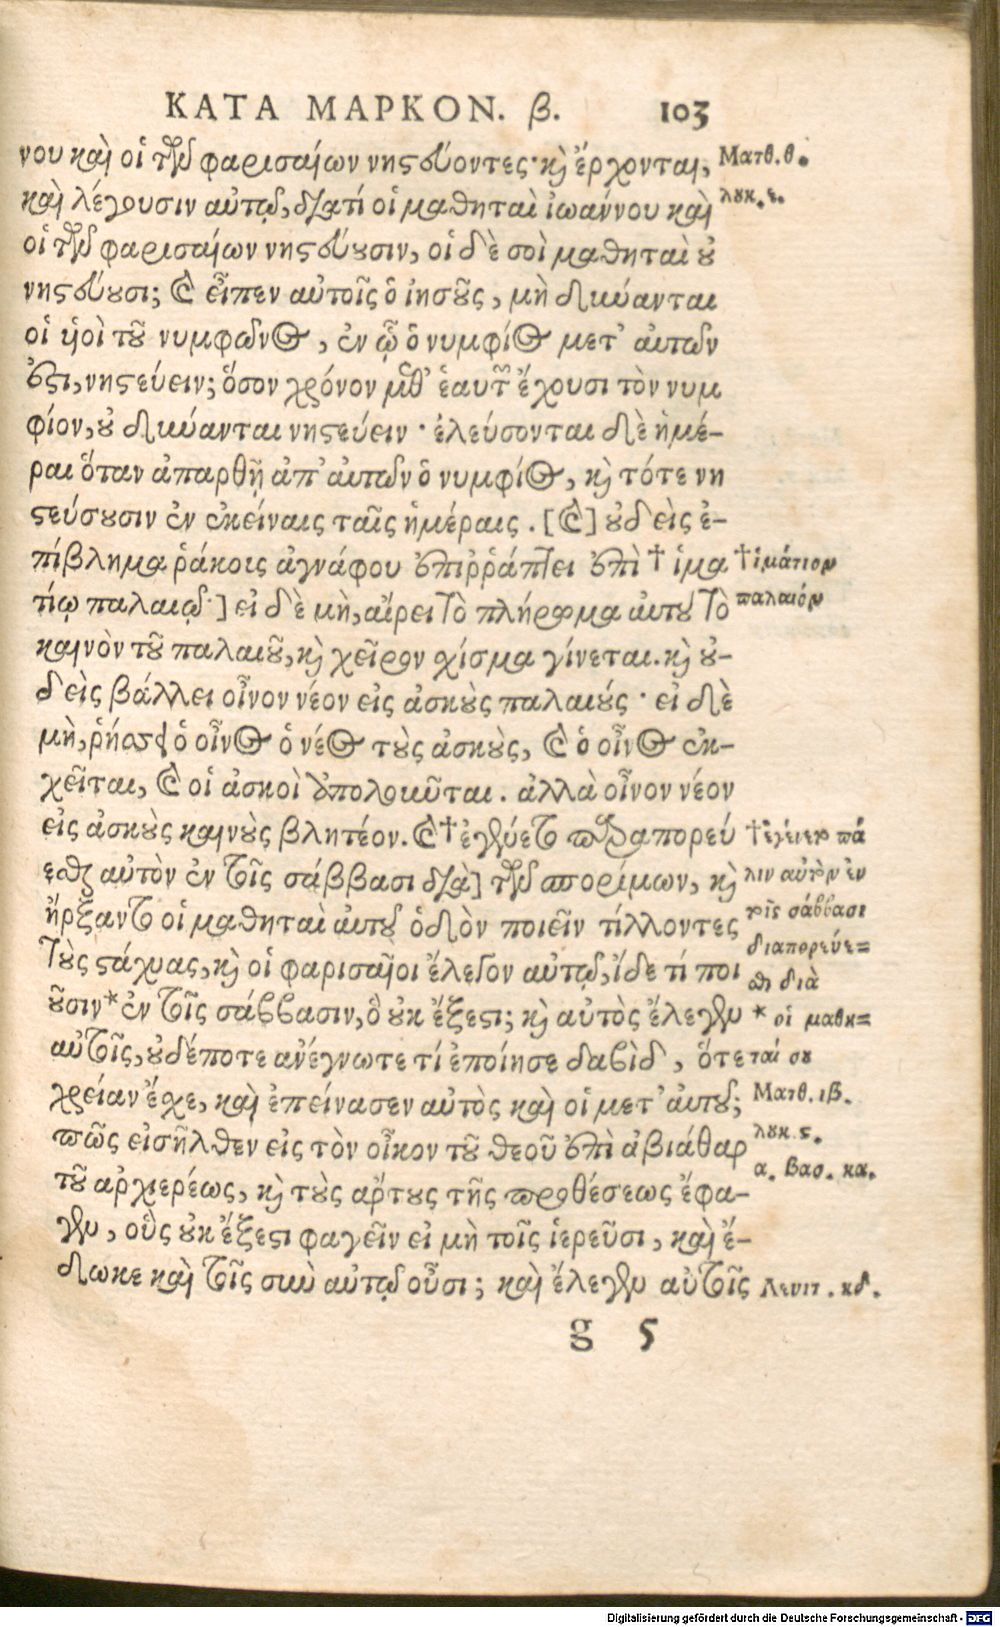 ΚΑΤΑ ΜΑΡΚΟΝ. β. 103
νου καὶ οἱ τῶν φαρισαίων νηστεύοντες· καὶ ἔρχονται,
καὶ λέγουσιν αὐτῷ, διατί οἱ μαθηταὶ ἰωάννου καὶ
οἱ τῶν φαρισαίων νηστεύουσιν, οἱ δὲ σοὶ μαθηταὶ οὐ
νηστεύουσι; καὶ εἶπεν αὐτοῖς ὁ ἰησοῦς, μὴ δύνανται
οἱ υἱοὶ τοῦ νυμφῶνος, ἐν ᾧ ὁ νυμφίος μετ' αὐτῶν
ἐστι, νηστεύειν; ὅσον χρόνον μεθ' ἑαυτῶν ἔχουσι τὸν νυμ
φίον, οὐ δύνανται νηστεύειν· ἐλεύσονται δὲ ἡμέ-
ραι ὅταν ἀπαρθῇ ἀπ' αὐτῶν ὁ νυμφίος, καὶ τότε νη
στεύσουσιν ἐν ἐκείναις ταῖς ἡμέραις. [καὶ] οὐδεὶς ἐ-
πίβλημα ῥάκοις ἀγνάφου ἐπιῤῥάπτει ἐπὶ † ἱμα
τίῳ παλαιῷ·] εἰ δὲ μὴ, αἴρει τὸ πλήρωμα αὐτοῦ τὸ
καινὸν τοῦ παλαιοῦ, καὶ χεῖρον σχίσμα γίνεται. καὶ οὐ-
δεὶς βάλλει οἶνον νέον εἰς ἀσκοὺς παλαιούς· εἰ δὲ
μὴ, ῥήσσει ὁ οἶνος ὁ νέος τοὺς ἀσκοὺς, καὶ ὁ οἶνος ἐκ-
χεῖται, καὶ οἱ ἀσκοὶ ἀπολοῦνται. ἀλλὰ οἶνον νέον
εἰς ἀσκοὺς καινοὺς βλητέον. καὶ † ἐγένετο παραπορεύ
εσθαι αὐτὸν ἐν τοῖς σάββασι διὰ] τῶν σπορίμων, καὶ
ἤρξαντο οἱ μαθηταὶ αὐτοῦ ὁδὸν ποιεῖν τίλλοντες
τοὺς στάχυας, καὶ οἱ φαρισαῖοι ἔλεγον αὐτῷ, ἴδε τί ποι
οῦσιν * ἐν τοῖς σάββασιν, ὃ οὐκ ἔξεστι; καὶ αὐτὸς ἔλεγεν
αὐτοῖς, οὐδέποτε ἀνέγνωτε τί ἐποίησε δαβὶδ, ὅτε
χρείαν ἔσχε, καὶ ἐπείνασεν αὐτὸς καὶ οἱ μετ' αὐτοῦ;
πῶς εἰσῆλθεν εἰς τὸν οἶκον τοῦ θεοῦ ἐπὶ ἀβιάθαρ
τοῦ ἀρχιερέως, καὶ τοὺς ἄρτους τῆς προθέσεως ἔφα-
γεν, οὓς οὐκ ἔξεστι φαγεῖν εἰ μὴ τοῖς ἱερεῦσι, καὶ ἔ-
δωκε καὶ τοῖς σὺν αὐτῷ οὖσι; καὶ ἔλεγεν αὐτοῖς
g 5
Ματθ. θ.
λουκ. ε.
† ἱμάτιον
παλαιόν
† ἐγένετο πά
λιν αὐτὸν ἐν
τοῖς σάββασι
διαπορεύε=
σθαι διὰ
* οἱ μαθη=
ταί σου
Ματθ. ιβ.
λουκ. ς.
α. βασ. κα.
Λευιτ. κδ.
Digitalisierung gefördert durch die Deutsche Forschungsgemeinschaft - DFG